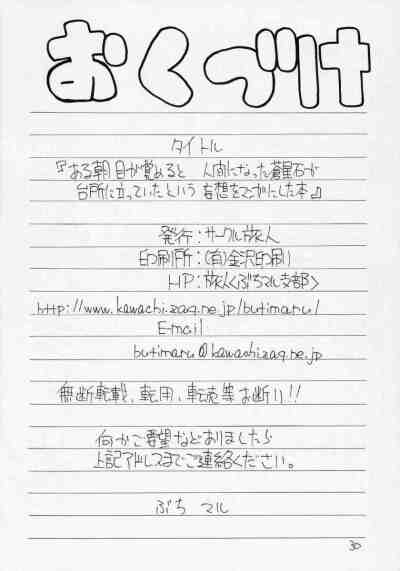 おくづけ
タイトル
『ある朝目が覚めると 人間になった蒼星石が
台所に立っていたという妄想をてーまにした本』
発行:サークル旅人
印刷所:(有)金沢印刷
HP:旅人くぶちマル支部>
http://www.kawachi.zaq.ne.jp/butimaru/
E-mail
butimaru@kawachi.zaq.ne.jp
無断転載、転用、転売等お断り!!
何かご要望などありましたら
上記アドレスまでご連絡ください。
ぶち マル
30